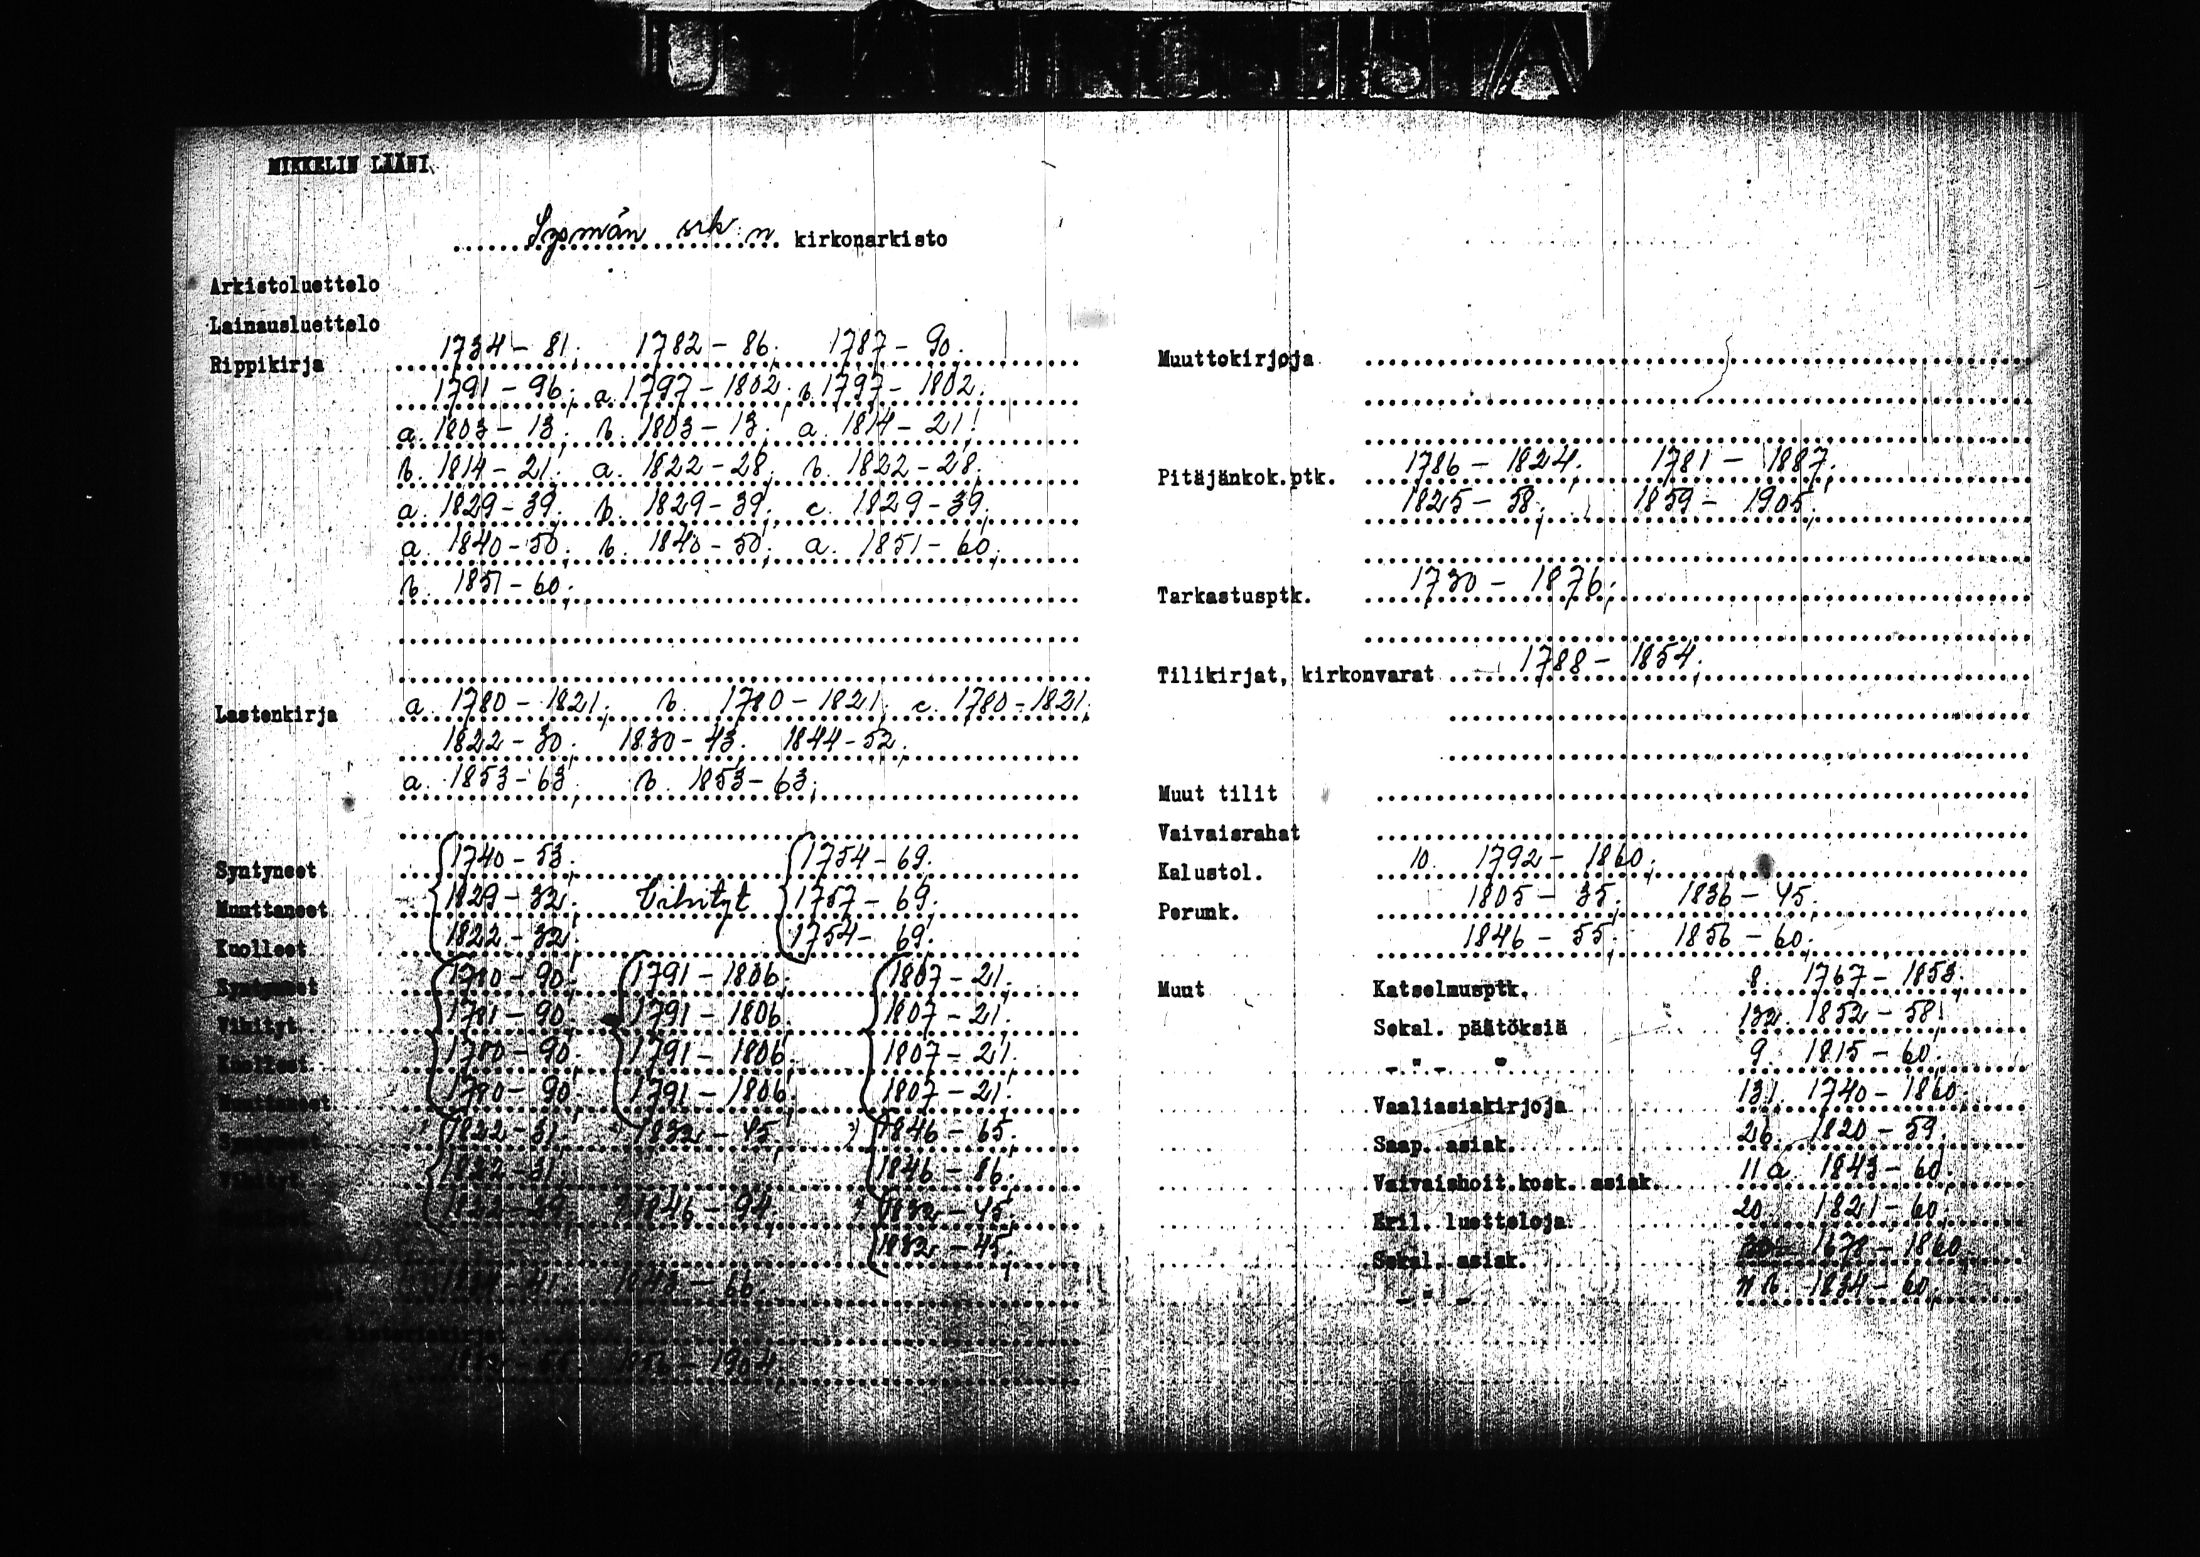 MIKKELIN LÄÄNI
Sysmän srk:n kirkonarkisto
Arkistoluettelo
Lainausluettelo
Rippikirja 1734-81; 1782-86; 1787-90;
1791-96; a. 1797-1802; b. 1797-1802;
a. 1803-13; b. 1803-13; a. 1814-21;
b. 1814-21; a. 1822-28; b. 1822-28;
a. 1829-39; b. 1829-39; c. 1829-39;
a. 1840-50; b. 1840-50; a. 1851-60;
b. 1851-60;
Lastenkirja a. 1780-1821; b. 1780-1821; c. 1780-1821;
1822-30; 1830-43; 1844-52;
a. 1853-63; b. 1853-63;
Syntyneet 1740-53; 1754-69;
Muuttaneet 1829-32; Vihityt 1757-69;
Kuolleet 1822-32; 1754-69;
Syntyneet 1780-90; 1791-1806; 1807-21;
Vihityt 1781-90; 1791-1806; 1807-21;
Kuolleet 1780-90; 1791-1806; 1807-21;
Muuttaneet 1780-90; 1791-1806; 1807-21;
Syntyneet 1822-31; 1832-45; 1846-65;
Vihityt 1822-31; 1846-86;
1846-94; 1832-45;
1832-45;
Muuttokirjoja
Pitäjänkok.ptk. 1786-1824; 1781-1887;
1825-58; 1859-1905;
Tarkastusptk. 1730-1876;
Tilikirjat, kirkonvarat 1788-1854;
Muut tilit
Vaivaisrahat
Kalustol. 10. 1792-1860;
Perunk. 1805-35; 1836-45;
1846-55; 1856-60;
Muut Katselmusptk. 8. 1767-1853;
Sekal. päätöksiä 132. 1852-58;
-"- " 9. 1815-60;
Vaaliasiakirjoja 131. 1740-1860;
Saap. asiak. 26. 1820-59;
Vaivaishoit.kosk. asiak. 11 a. 1843-60;
Eril. luetteloja 20. 1821-60;
Sekal. asiak. 1678-1860;
-"- 11 b. 1834-60;